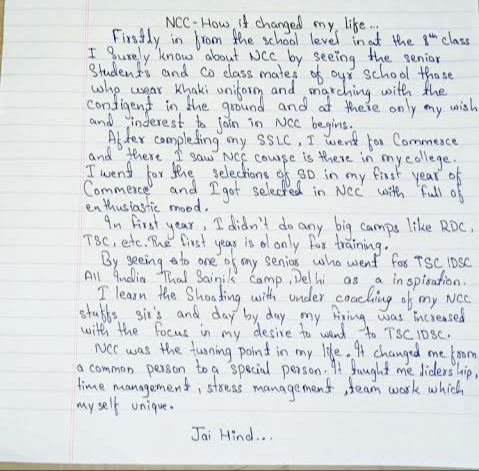 NCC - How it changed my life...
Firstly in from the school level in at the 8th class
I Surely know about NCC by seeing the senior
Students and co class mates of our school those
who wear khaki uniform and marching with the
contigent in the ground and at there only my wish
and inderest to join in NCC begins.
After completing my SSLC, I went for Commerce
and there I saw NCC course is there in my college.
I went for the selections of SD in my first year of
Commerce and I got selected in NCC with full of
enthusiastic mood.
In first year, I didn't do any big camps like RDC,
TSC, etc. The first year is only for training.
By seeing to one of my senior who went for TSC IDSC
All India Thal Sainik Camp, Delhi as a inspiration.
I learn the Shooting with under coaching of my NCC
staffs sir's and day by day my firing was increased
with the focus in my desire to went to TSC IDSC.
NCC was the turning point in my life. It changed me from
a common person to a special person. It taught me lidership,
time management, stress management, team work which
my self unique.
Jai Hind...